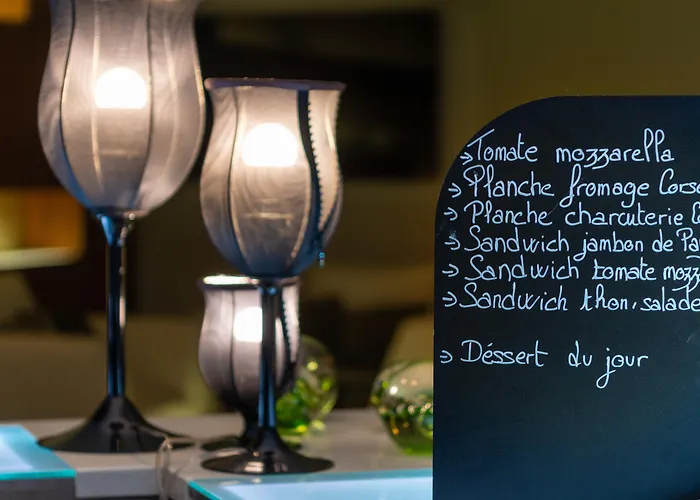 → Tomate mozzarella
→ Planche fromage Corse
→ Planche charcuterie
→ Sandwich jambon de Pa
→ Sandwich tomate mozz
→ Sandwich thon, salade
→ Déssert du jour